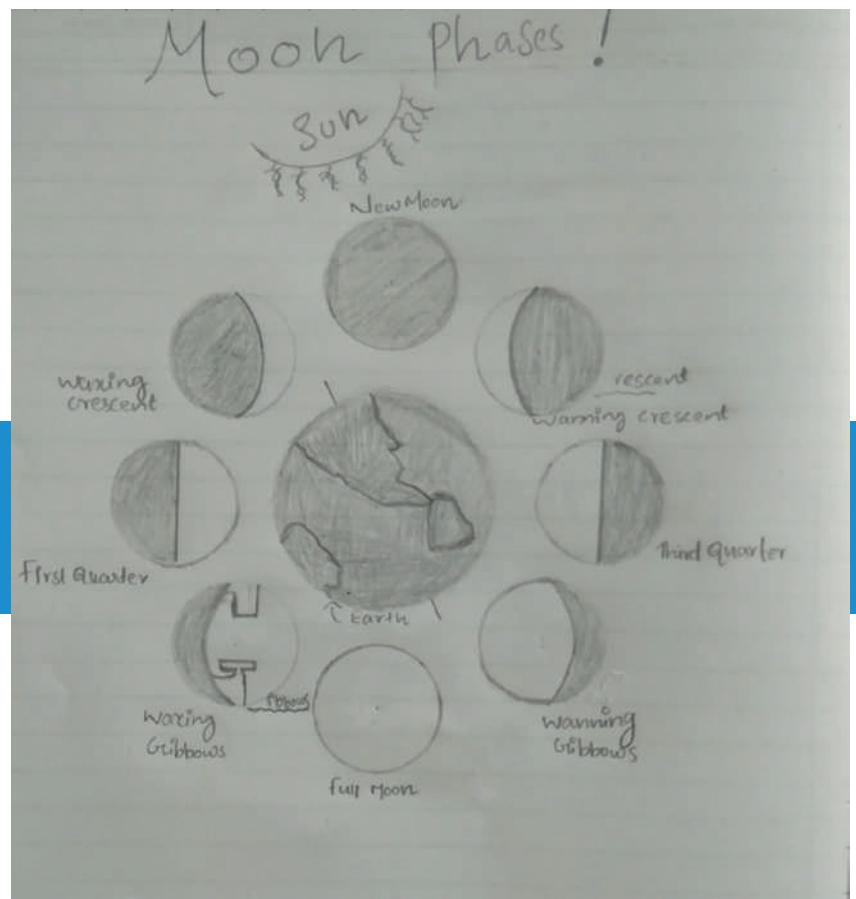 Moon Phases!
Sun
New Moon
waxing
crescent
rescent
warning crescent
First Quarter
Third Quarter
Earth
Waxing
Gibbows
wanning
Gibbows
full Moon